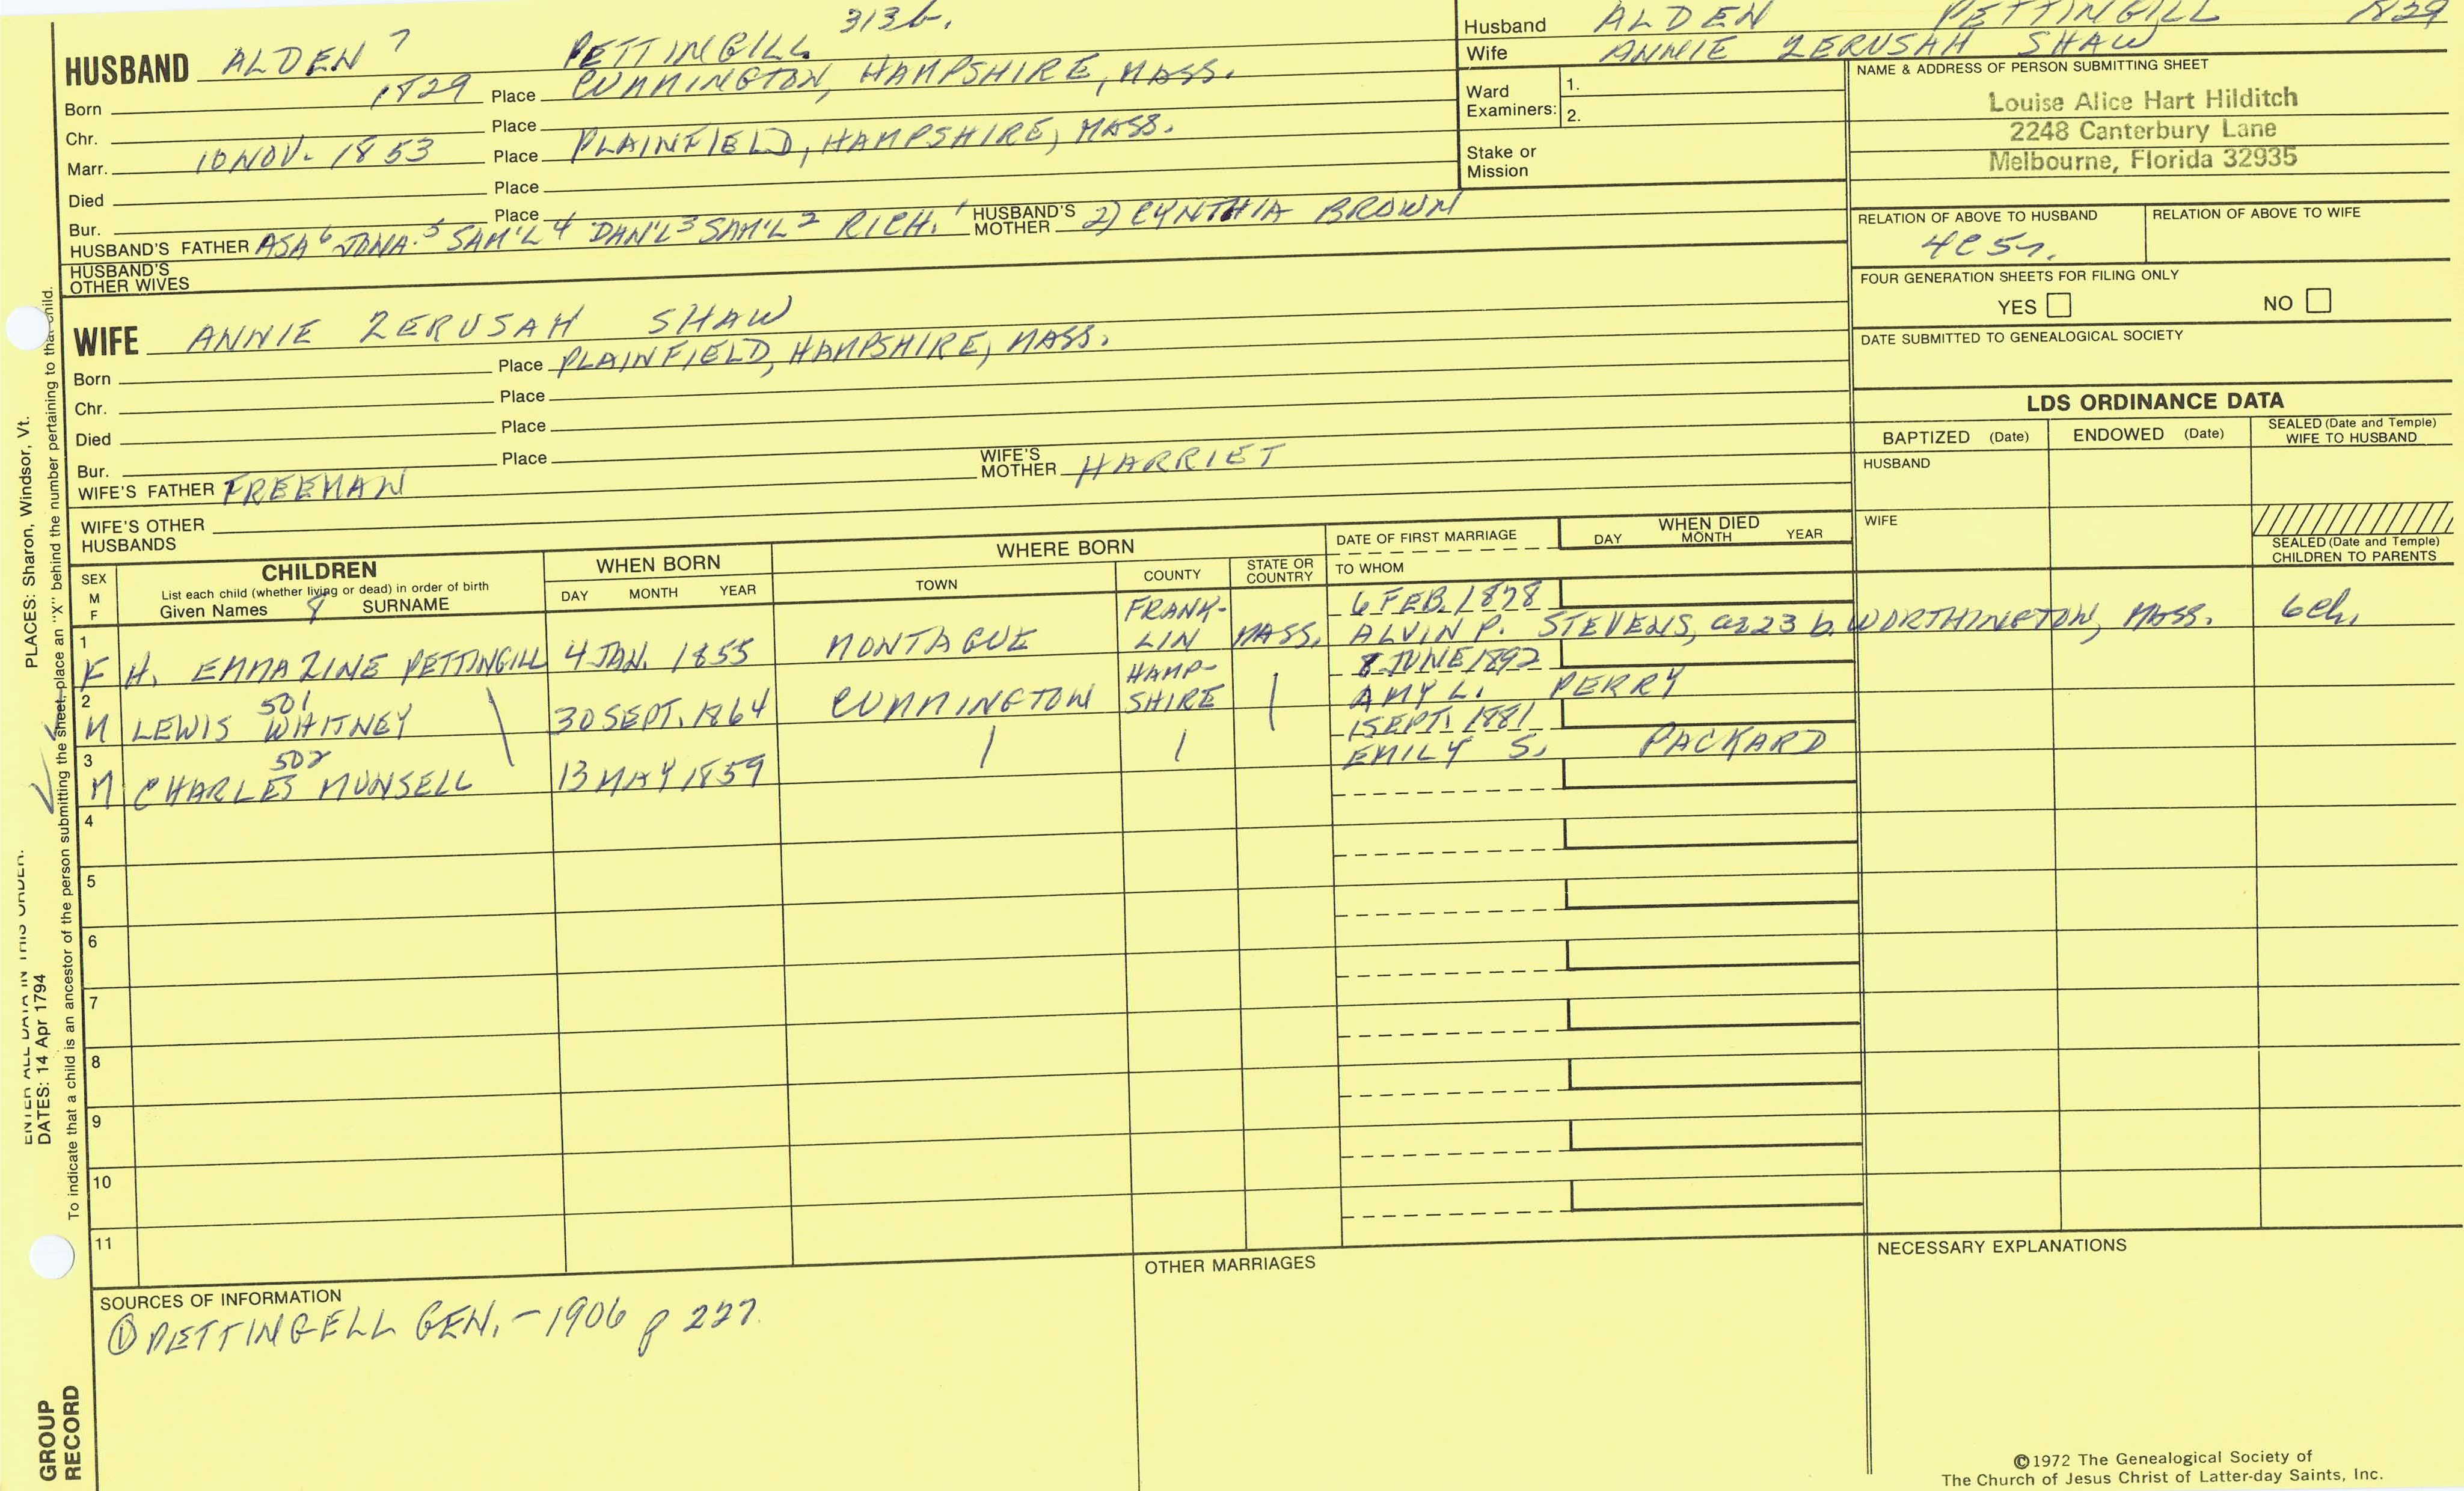 313b.
HUSBAND ALDEN 7 PETTINGILL
Born 1829 Place CUMMINGTON, HAMPSHIRE, MASS.
Chr. Place
Marr. 10 NOV. 1853 Place PLAINFIELD, HAMPSHIRE, MASS.
Died Place
Bur. Place
HUSBAND'S FATHER ASA 6 JONA. 5 SAM'L 4 DAN'L 3 SAM'L 2 RICH. 1 HUSBAND'S MOTHER 2) CYNTHIA BROWN
HUSBAND'S OTHER WIVES
Husband ALDEN PETTINGILL 1829
Wife ANNIE ZERUSAH SHAW
Ward Examiners: 1.
2.
Stake or Mission
NAME & ADDRESS OF PERSON SUBMITTING SHEET
Louise Alice Hart Hilditch
2248 Canterbury Lane
Melbourne, Florida 32935
RELATION OF ABOVE TO HUSBAND RELATION OF ABOVE TO WIFE
4C5r.
FOUR GENERATION SHEETS FOR FILING ONLY
YES NO
DATE SUBMITTED TO GENEALOGICAL SOCIETY
WIFE ANNIE ZERUSAH SHAW
Born Place PLAINFIELD, HAMPSHIRE, MASS.
Chr. Place
Died Place
Bur. Place
WIFE'S FATHER FREEMAN WIFE'S MOTHER HARRIET
WIFE'S OTHER HUSBANDS
LDS ORDINANCE DATA
BAPTIZED (Date) ENDOWED (Date) SEALED (Date and Temple) WIFE TO HUSBAND
HUSBAND
WIFE
SEALED (Date and Temple) CHILDREN TO PARENTS
SEX M F
CHILDREN
List each child (whether living or dead) in order of birth
Given Names 8 SURNAME
WHEN BORN
DAY MONTH YEAR
WHERE BORN
TOWN COUNTY STATE OR COUNTRY
DATE OF FIRST MARRIAGE
TO WHOM
WHEN DIED
DAY MONTH YEAR
1 FRANK- 6 FEB. 1878
F H. EMMAZINE PETTINGILL 4 JAN. 1855 MONTAGUE LIN MASS. ALVIN P. STEVENS, a 23 b. WORTHINGTON, MASS. 6ch.
2 501 HAMP- 8 JUNE 1892
M LEWIS WHITNEY \ 30 SEPT. 1864 CUMMINGTON SHIRE | AMY L. PERRY
3 502 1 SEPT. 1881
M CHARLES MUNSELL 13 MAY 1859 | | EMILY S. PACKARD
4
5
6
7
8
9
10
11
SOURCES OF INFORMATION
① PETTINGELL GEN. - 1906 p 227.
OTHER MARRIAGES
NECESSARY EXPLANATIONS
©1972 The Genealogical Society of
The Church of Jesus Christ of Latter-day Saints, Inc.
PLACES: Sharon, Windsor, Vt.
ENTER ALL DATA IN THIS ORDER:
DATES: 14 Apr 1794
To indicate that a child is an ancestor of the person submitting the sheet, place an "X" behind the number pertaining to that child.
GROUP
RECORD